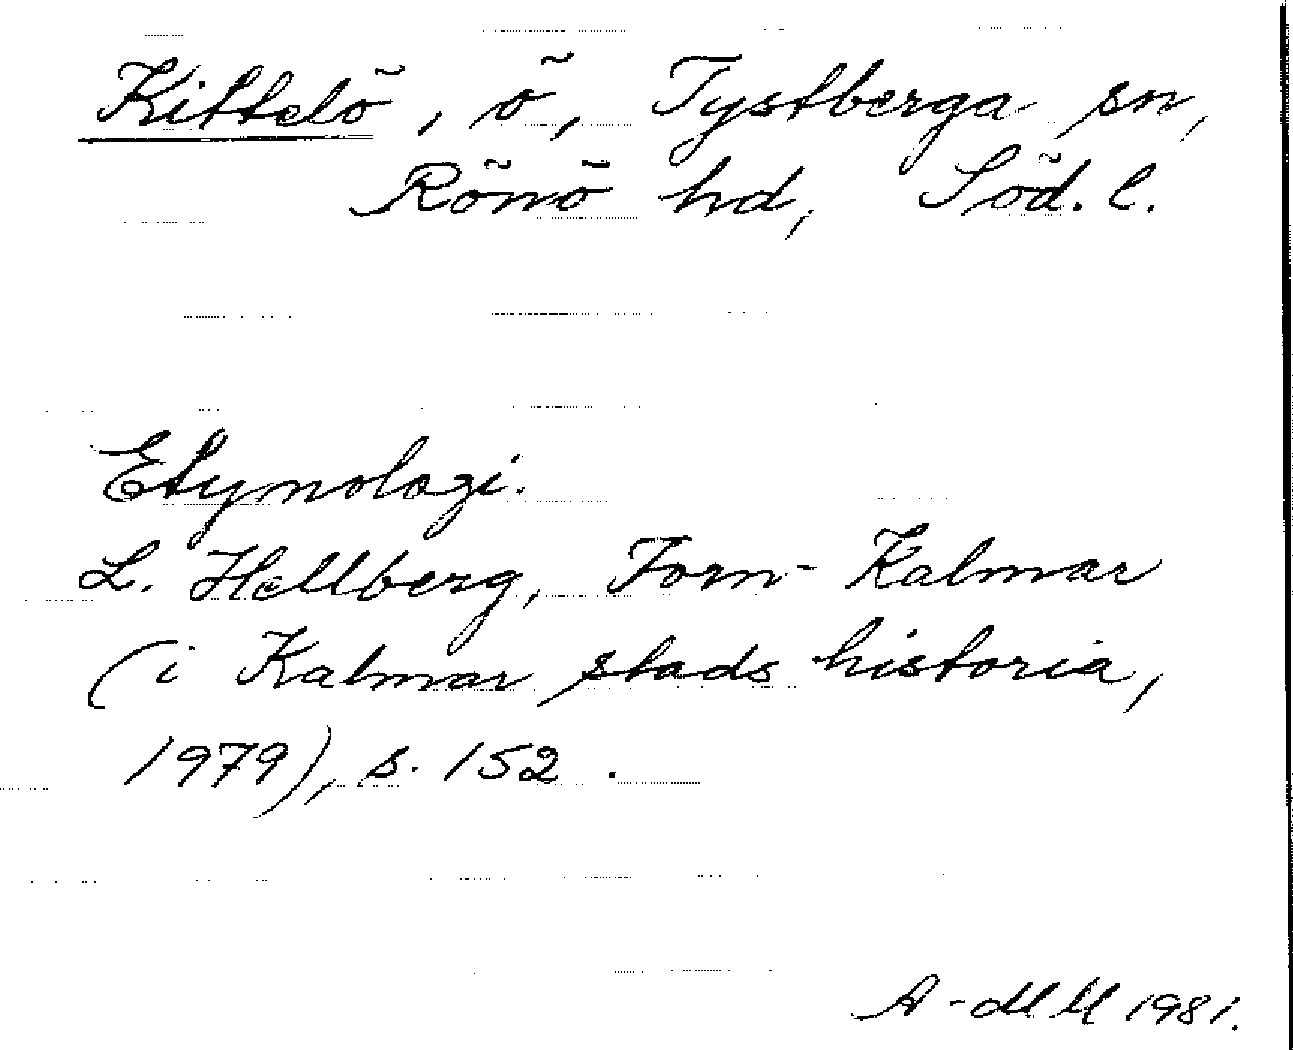 Kittelö, ö, Tystberga sn,
Rönö hd, Söd. l.
Etymologi.
L. Hellberg, Forn-Kalmar
(i Kalmar stads historia,
1979), s. 152.
A-MM 1981.